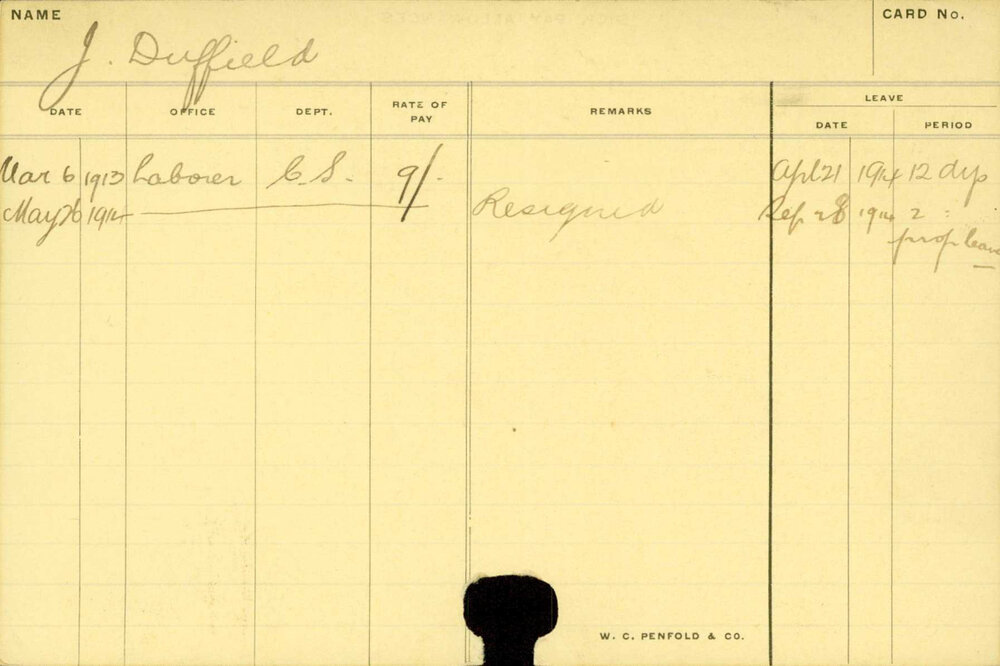 NAME
CARD No.
J. Duffield
LEAVE
DATE OFFICE DEPT. RATE OF PAY REMARKS DATE PERIOD
Mar 6 1913 Laborer C.S. 9/- Apl 21 1914 12 dys
May 26 1914 Resigned Sep 28 1914 2 "
prop leave
W. C. PENFOLD & CO.